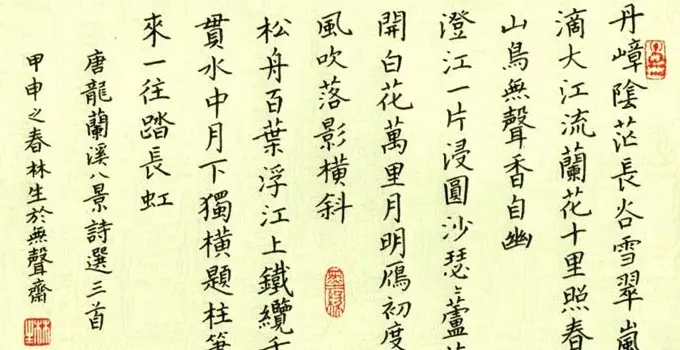 丹嶂陰茫長谷雪翠嵐
滴大江流蘭花十里照春
山鳥無聲香自幽
澄江一片浸圓沙瑟〻蘆
開白花萬里月明鴈初度
風吹落影橫斜
松舟百葉浮江上鐵纜千
貫水中月下獨橫題柱筆
來一往踏長虹
唐龍蘭溪八景詩選三首
甲申之春林生於無聲齋